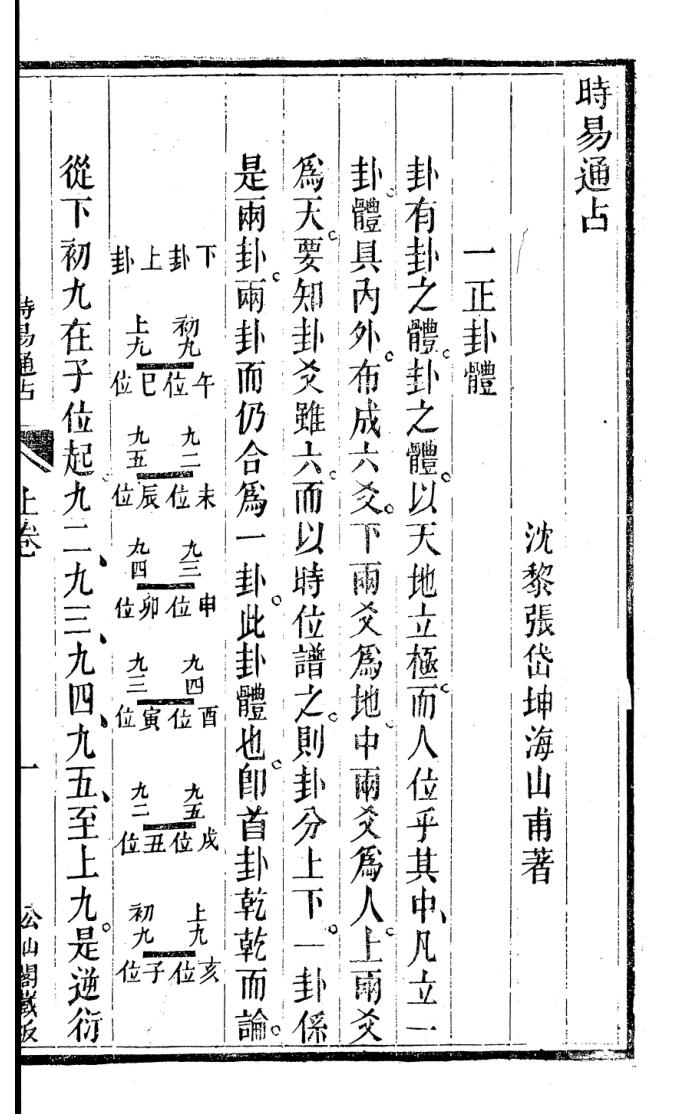 時易通占
沈黎張岱坤海山甫著
一正卦體
卦有卦之體。卦之體。以天地立極。而人位乎其中、凡立一
卦。體具內外。布成六爻。下兩爻爲地。中兩爻爲人。上兩爻
爲天。要知卦爻雖六。而以時位譜之。則卦分上下。一卦係
是兩卦。兩卦而仍合爲一卦。此卦體也。卽首卦乾乾而論。
下卦上卦
初九 午位 上九 巳位
九二 未位 九五 辰位
九三 申位 九四 卯位
九四 酉位 九三 寅位
九五 戌位 九二 丑位
上九 亥位 初九 子位
從下初九在子位起。九二、九三、九四、九五、至上九。是逆衍
時易通占 上卷 一 山閣藏板